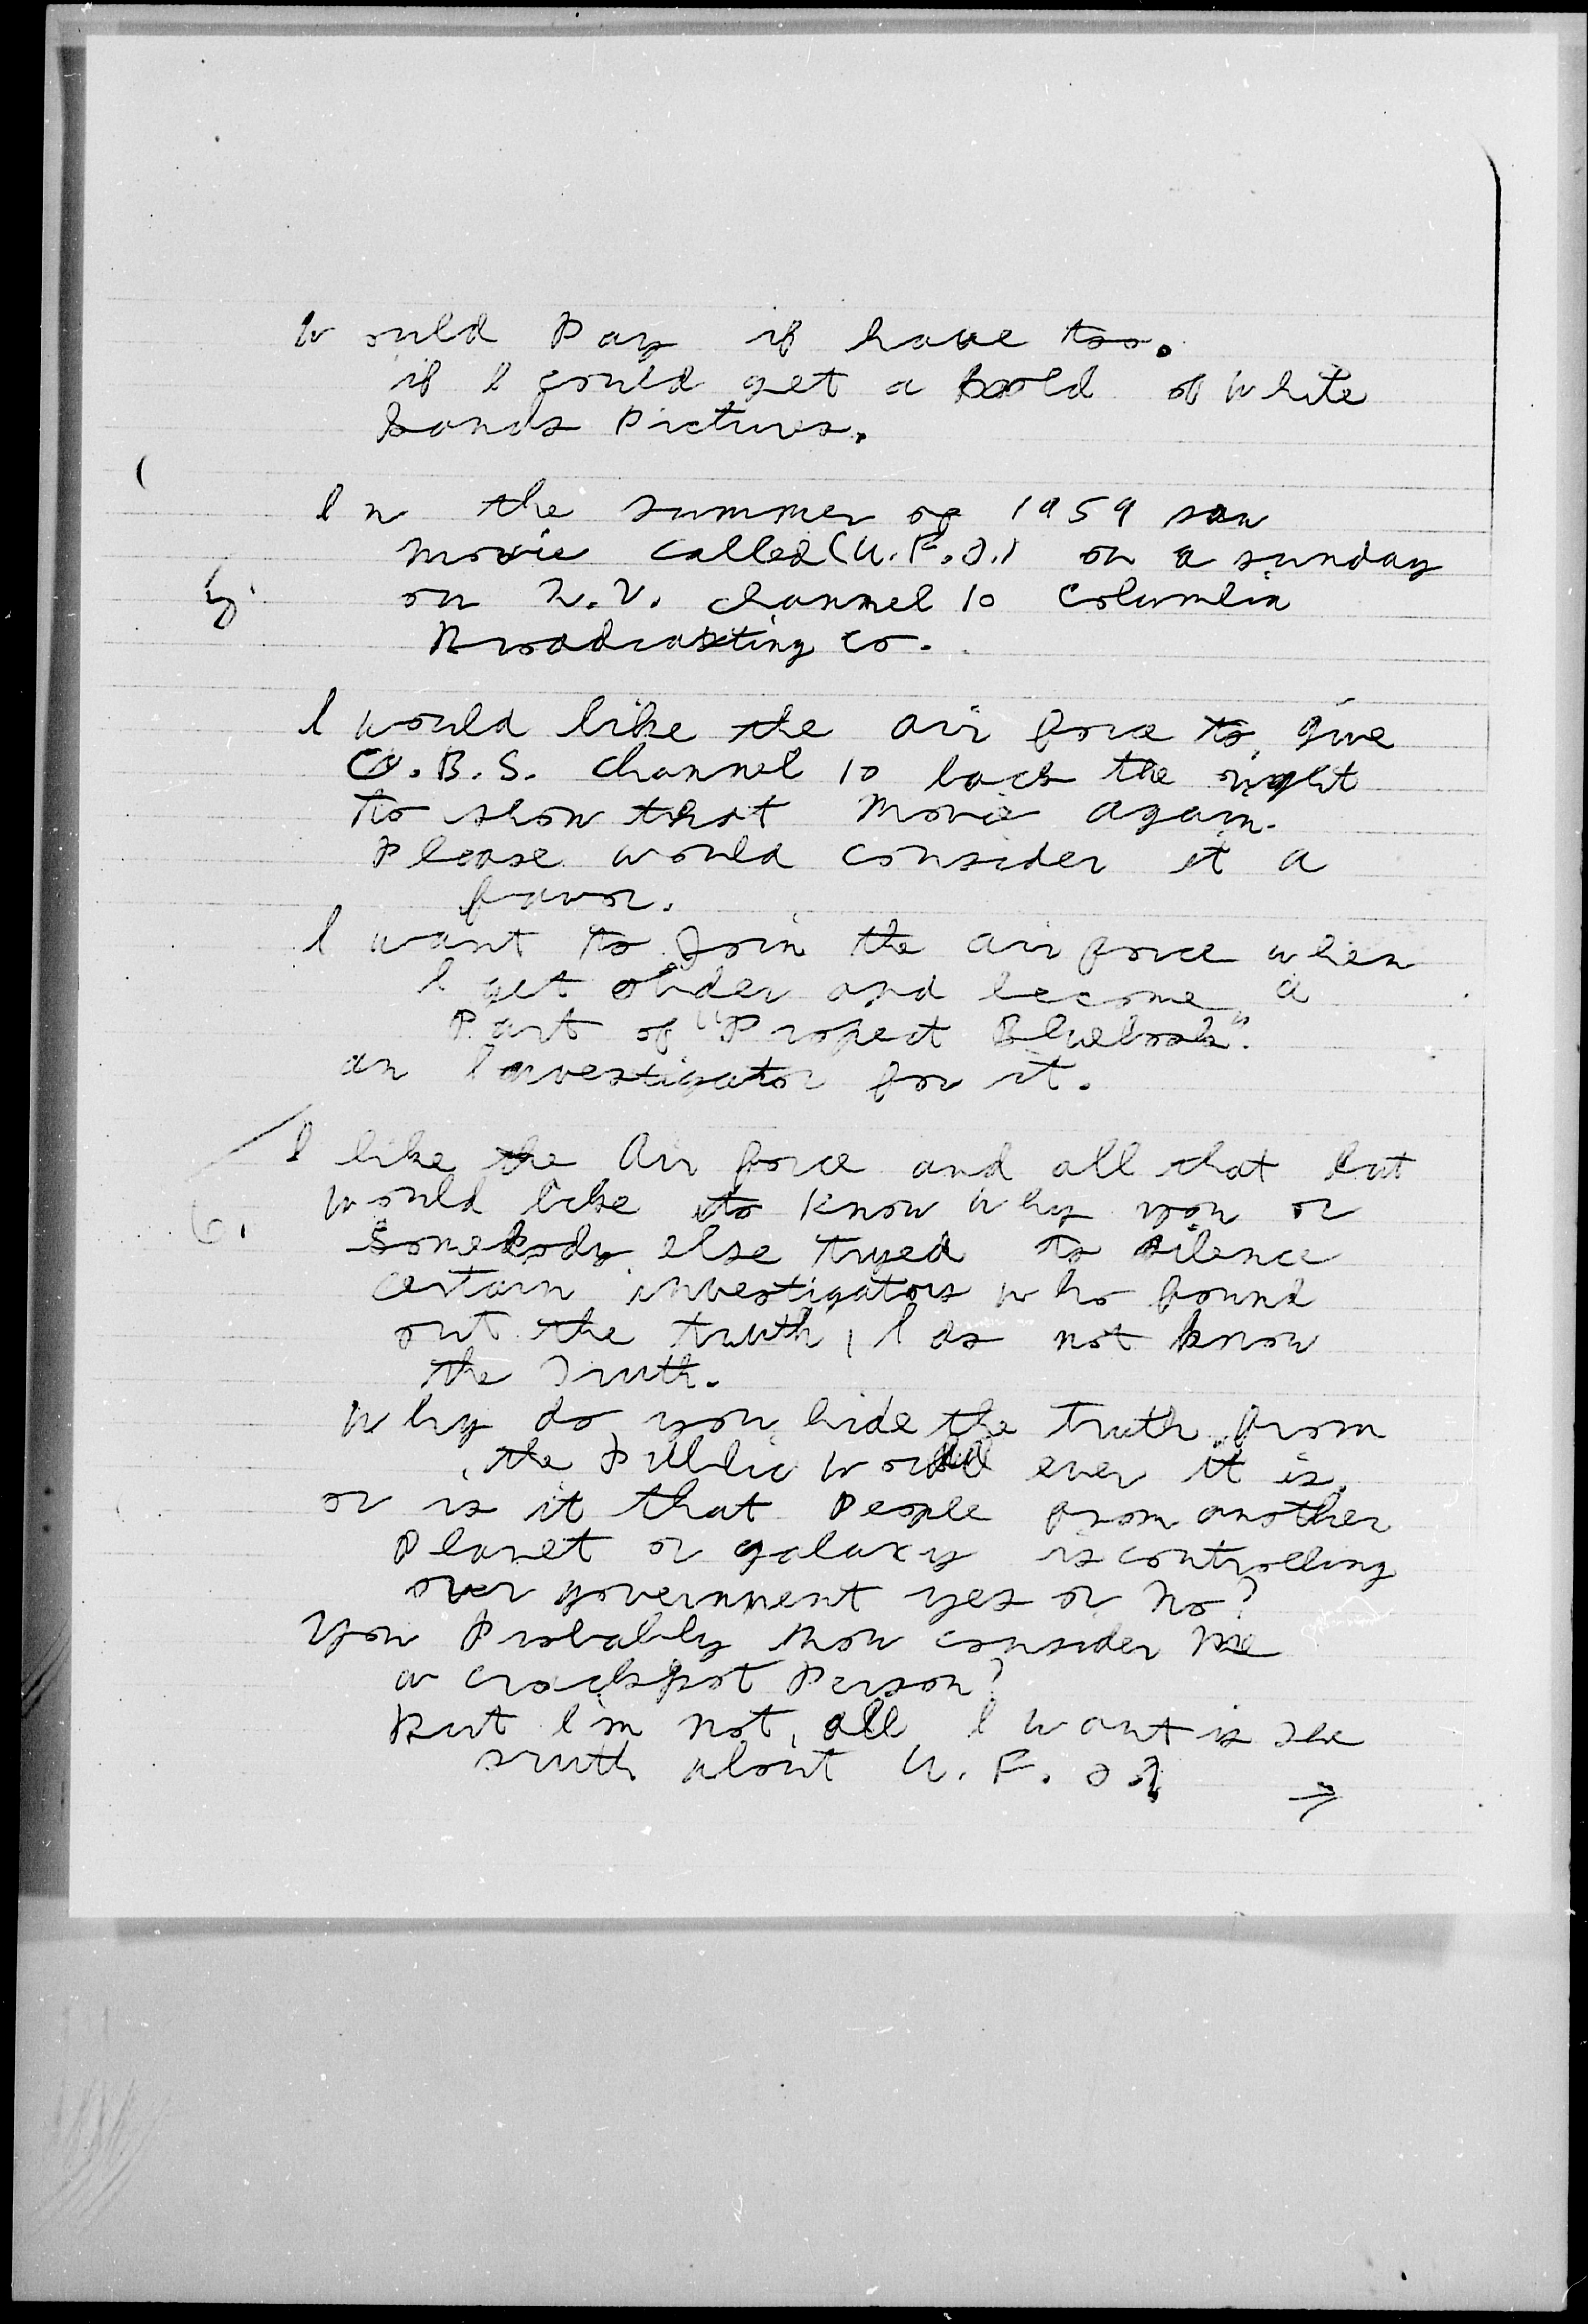 would Pay if have too.
if I could get a hold of white
Sands Pictures.
In the summer of 1959 saw
movie called (U.F.O.) on a sunday
5. on T.V. channel 10 Columbia
Broadcasting Co.
I would like the air force to give
C.B.S. channel 10 back the right
to show that movie again.
Please would consider it a
favor.
I want to Join the air force when
I get older and become a
Part of "Project Bluebook".
an Investigator for it.
I like the Air force and all that but
6. would like to know why you or
Somebody else tryed to silence
certain investigators who found
out the truth, I do not know
the Truth.
why do you hide the truth from
the Public ever it is,
or is it that People from another
Planet or galaxy is controlling
over government yes or No?
You Probably now consider me
a crackpot Person?
But I'm not, all I want is the
truth about U.F.O?
→